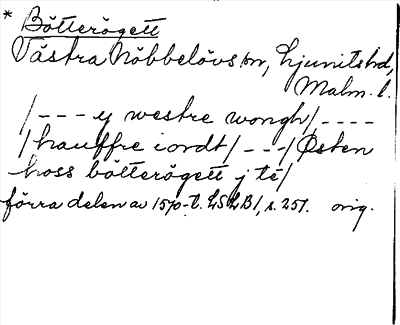 * Bötterögett
Västra Nöbbelövs sn, Ljunits hd,
Malm. l.
/--- y westre wongh/----
/hauffre iordt/---/Østen
hoss bötterögett j te/
förra delen av 1570-t. LSLB1, s. 251. orig.